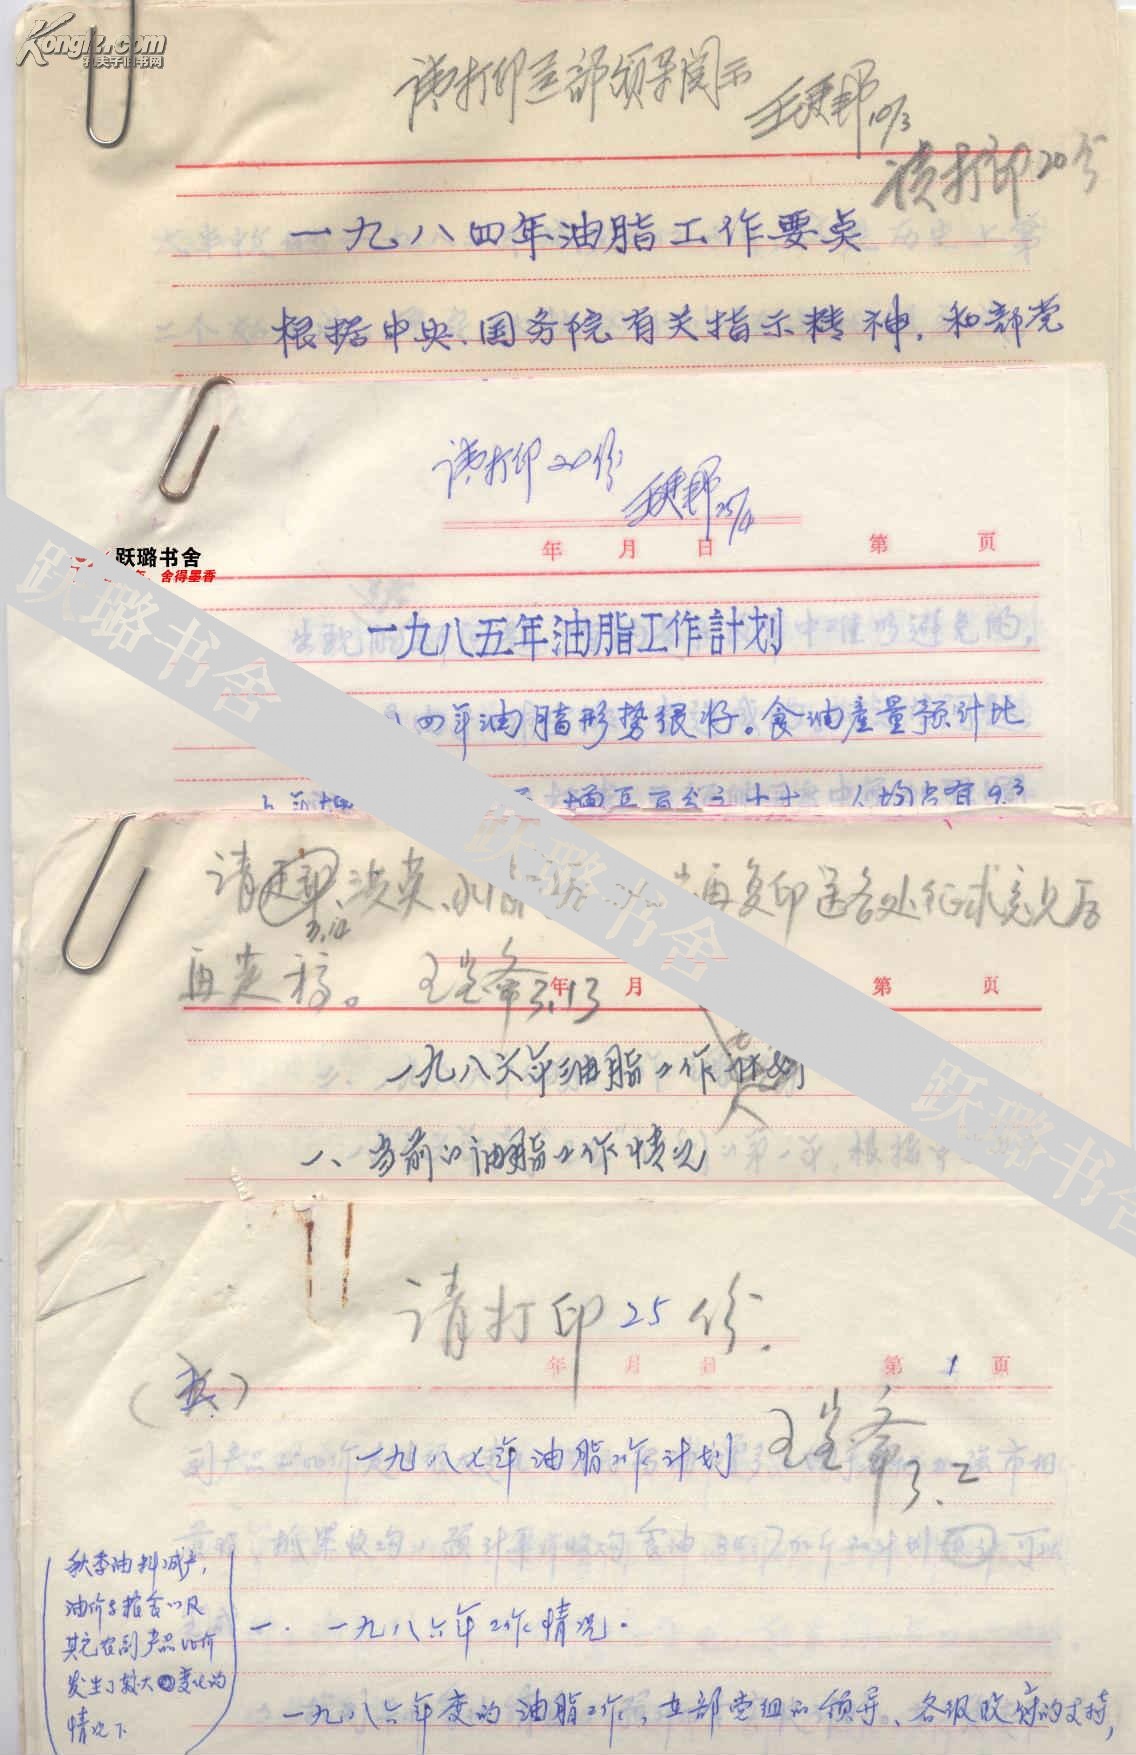 Kongfz.com
孔夫子旧书网
请打印呈部领导阅示
10/3
请打印20份
一九八四年油脂工作要点
根据中央、国务院有关指示精神，和部党
请打印20份
25/4
年 月 日 第 页
跃璐书舍
舍得墨香
一九八五年油脂工作計划
四年油脂形势很好。食油產量预计比
人均占有9.3
跃璐书舍
跃璐书舍
跃璐书舍
请 洪英、 再复印送各处征求意见后
3.14
再 稿。 3.13
年 月 第 页
一九八六年油脂工作
一、当前的油脂工作情况
请打印25份.
年 月 日 第 1 页
一九八七年油脂工作计划
3.2
秋季油料减产，
油价与粮食以及
其它农副产品比价
发生了较大变化的
情况下
一. 一九八六年工作情况.
一九八六年度的油脂工作，在部党组的领导、各级政府的支持，